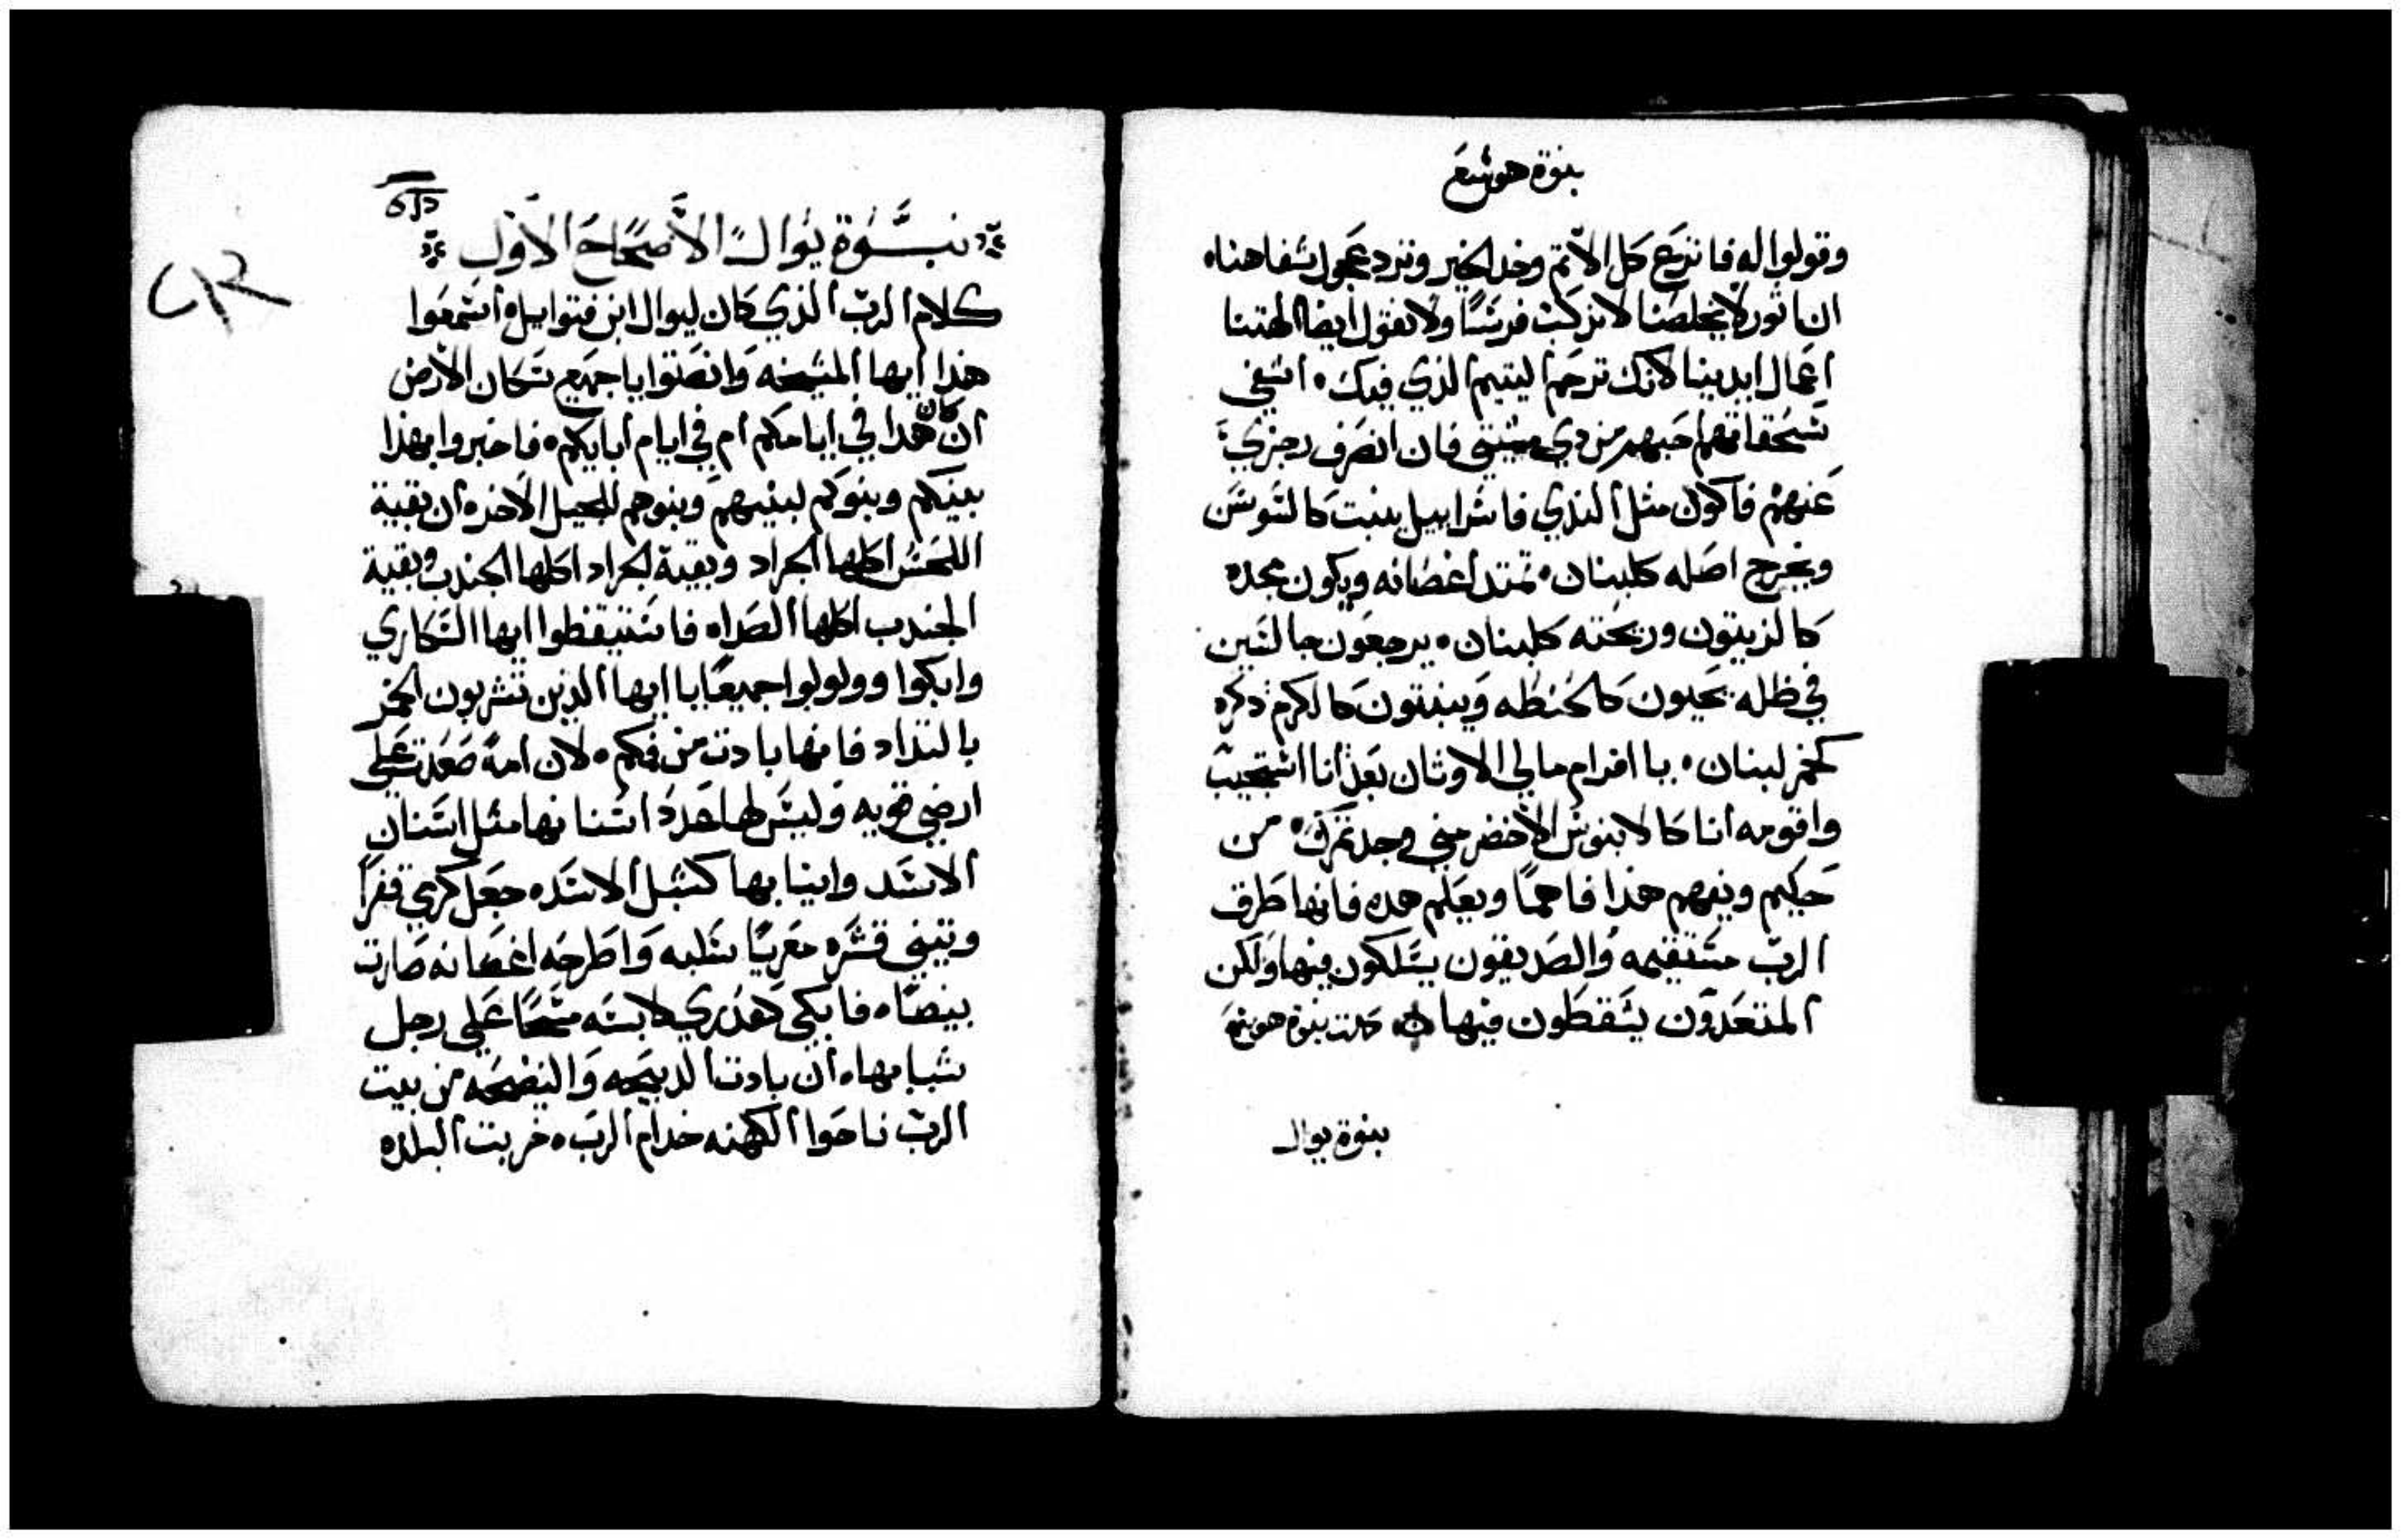 بنوة هوشع
وقولوا له فانزع كل الاثم وخد الخير ونرد عجول شفاهنا ه
ان اثور لا يخلصنا لا نركب فرسًا ولا نقول ايضا الهتنا
اعمال ايدينا لانك ترحم اليتيم الذي فيك ه اشفي
سحقاتهم احبهم من دي فان انصرف رجزي
عنهم فاكون مثل الندي فاسراييل ينبت كالسوسن
ويخرج اصله كلبنان ه تمتد اغصانه ويكون مجده
كالزيتون وريحته كلبنان ه يرجعون جالسين
في ظله يحيون كالحنطه وينبتون كالكرم ذكره
كخمر لبنان ه يا افرام مالي الاوثان بعد انا استجيب
واقومه انا كالابنوس الاخضر مني وجد تمرك ه من
حكيم ويفهم هذا فاهمًا ويعلم هده فانها طرق
الرب مستقيمه والصديقون يسلكون فيها ولكن
المتعدون يسقطون فيها كملت بنوة هوشع
بنوة يوال
نبوة يوال الأصحاح الاول
كلام الرب الذي كان ليوال ابن فتواييل ه اسمعوا
هذا ايها المشيخه وانصتوا يا جميع سكان الارض
ان كان هدا في ايامكم ام في ايام ابايكم ه فاخبروا بهذا
بنيكم وبنوكم لبنيهم وبنوهم للجيل الاخر ه ان بقية
اللحس اكلها الجراد وبقية الجراد اكلها الجندب وبقية
الجندب اكلها الصداه فاستيقظوا ايها السكاري
وابكوا وولولوا جميعًا يا ايها الذين تشربون الخمر
بالتداد فانها بادت من فمكم ه لان امة صعدت علي
ارضي قويه وليس لها عدد اسنانها مثل اسنان
الاسد وانيابها كشبل الاسد ه جعل كرمي قفرًا
وتيني قشره معريًا سلبه واطرحه اغصانه صارت
بيضا ه فابكي كعذري لابسه مسحًا علي رجل
شبابها ه ان بادت الدبيحه والنضحه من بيت
الرب ناحوا الكهنه خدام الرب ه خربت البلده